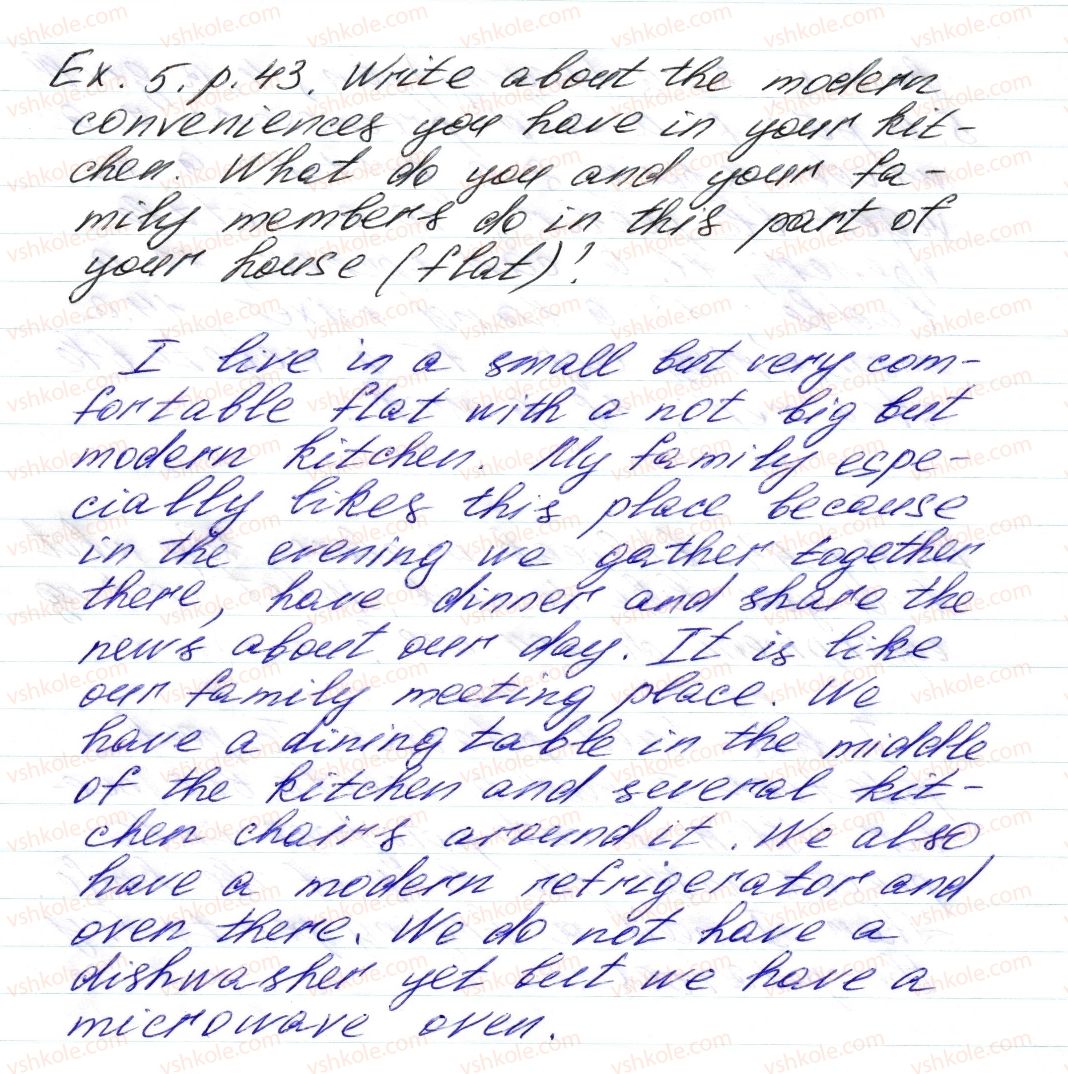 Ex. 5. p. 43. Write about the modern
conveniences you have in your kit-
chen. What do you and your fa-
mily members do in this part of
your house (flat)?
I live in a small but very com-
fortable flat with a not big but
modern kitchen. My family espe-
cially likes this place because
in the evening we gather together
there, have dinner and share the
news about our day. It is like
our family meeting place. We
have a dining table in the middle
of the kitchen and several kit-
chen chairs around it. We also
have a modern refrigerator and
oven there. We do not have a
dishwasher yet but we have a
microwave oven.